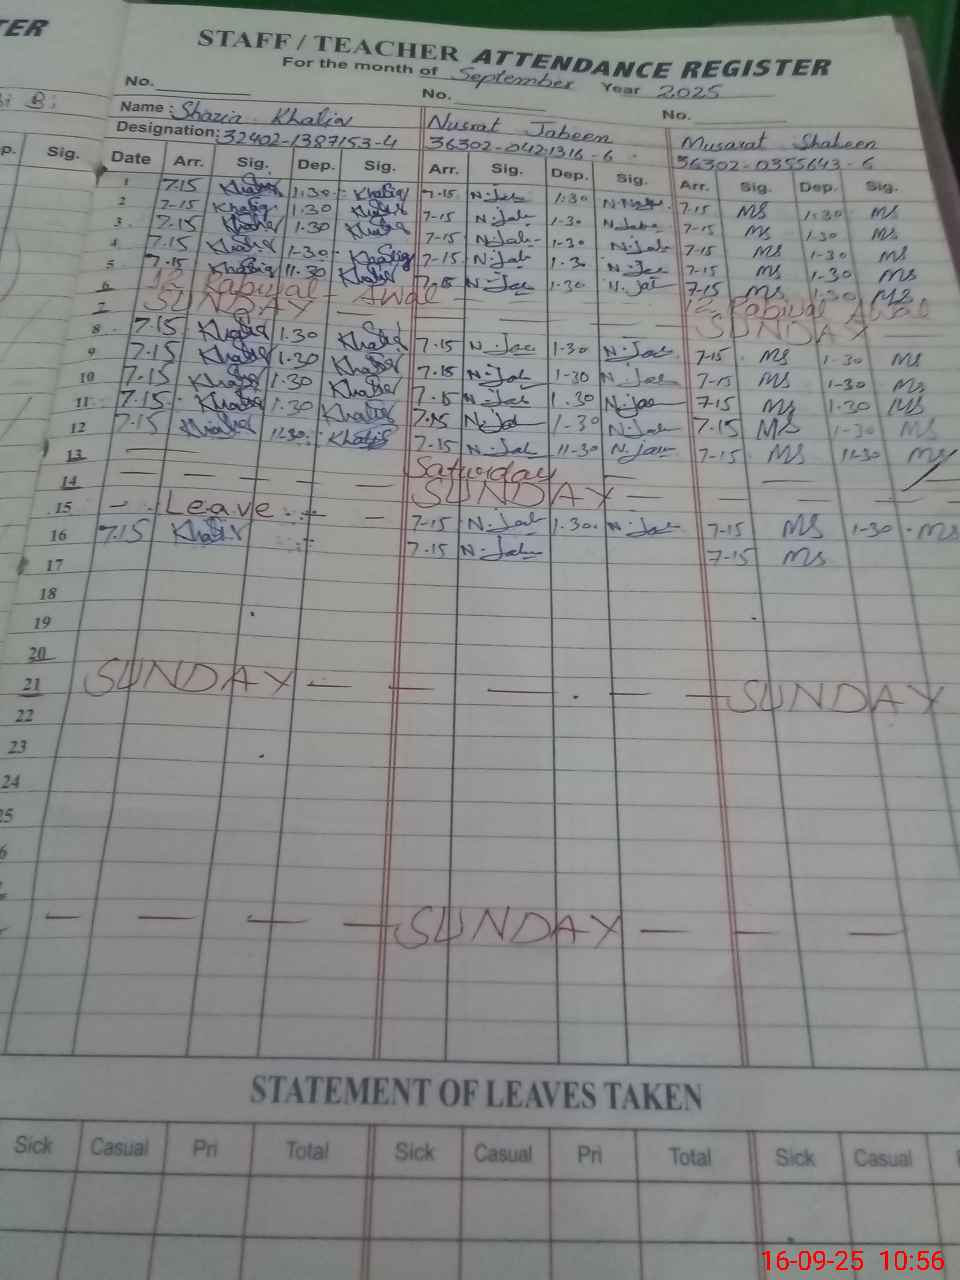 TER
STAFF / TEACHER ATTENDANCE REGISTER
For the month of September Year 2025
No. No. No.
Name: Shazia Khaliq Nusrat Jabeen Musarat Shaheen
Designation: 32402-1387153-4 36302-0421316-6 36302-0355643-6
p. Sig. Date Arr. Sig. Dep. Sig. Arr. Sig. Dep. Sig. Arr. Sig. Dep. Sig.
1 7.15 Khaliq 1.30 Khaliq 7.15 N.Jab 1.30 7-15 MS 1.30 MS
2 7-15 Khaliq 1.30 Khaliq 7-15 N.Jab 1-30 N.Jab 7-15 MS 1.30 MS
3 7.15 Khaliq 1.30 Khaliq 7-15 N.Jab 1-30 N.Jab 7-15 MS 1-30 MS
4 7.15 Khaliq 1-30 Khaliq 7-15 N.Jab 1.30 N.Jab 7-15 MS 1-30 MS
5 7.15 Khaliq 11.30 Khaliq 7.15 N.Jab 1.30 N.Jab 7-15 MS 1.30 MS
6 12 Rabiul - Awal 12 Rabiul Awal
7 SUNDAY SUNDAY
8 7.15 Khaliq 1.30 Khaliq 7.15 N.Jab 1-30 N.Jab 7-15 MS 1-30 MS
9 7.15 Khaliq 1.30 Khaliq 7.15 N.Jab 1-30 N.Jab 7-15 MS 1-30 MS
10 7.15 Khaliq 1.30 Khaliq 7.15 N.Jab 1.30 N.Jab 7-15 MS 1-30 MS
11 7.15 Khaliq 1.30 Khaliq 7.15 N.Jab 1-30 N.Jab 7-15 MS 1-30 MS
12 7.15 Khaliq 11.30 Khaliq 7-15 N.Jab 11-30 N.Jab 7-15 MS 11-30 MS
13 Saturday
14 SUNDAY
15 Leave 7-15 N.Jab 1.30 N.Jab 7-15 MS 1-30 MS
16 7.15 Khaliq 7.15 N.Jab 7-15 MS
17
18
19
20
21 SUNDAY SUNDAY
22
23
24
25
6
SUNDAY
STATEMENT OF LEAVES TAKEN
Sick Casual Pri Total Sick Casual Pri Total Sick Casual
16-09-25 10:56